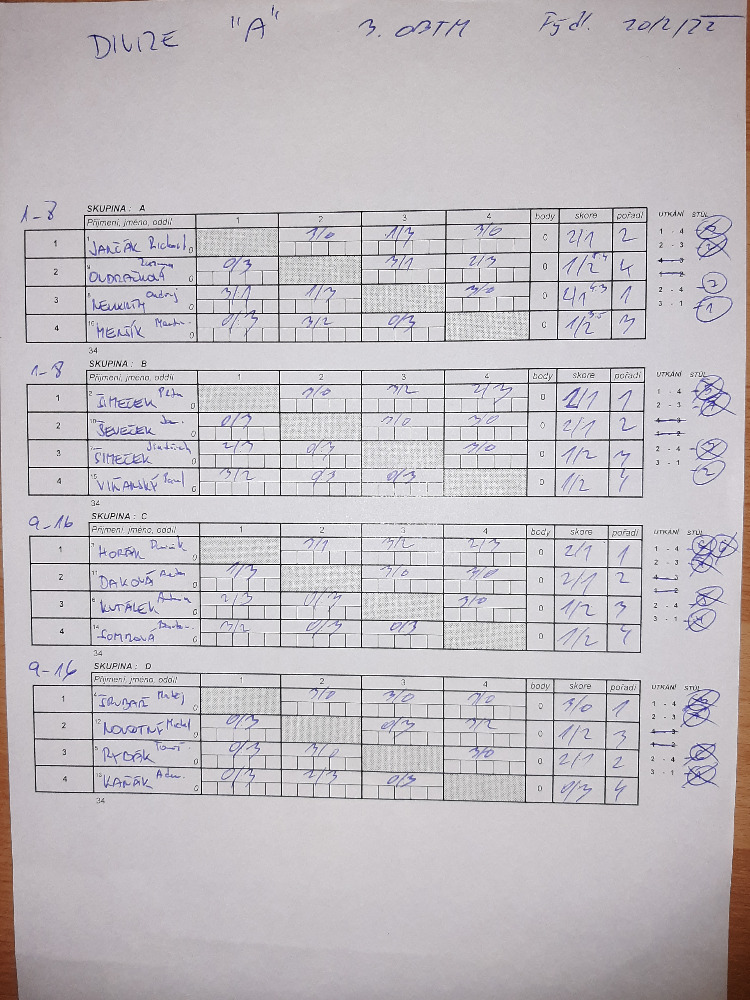 DIVIZE "A" 3. OBTM Frýdl. 20/2/22
1-8 SKUPINA : A
Příjmení, jméno, oddíl 1 2 3 4 body skore pořadí UTKÁNÍ STŮL
1 JANČÁK Richard 0 3/0 1/3 3/0 0 2/1 2 1 - 4
2 ONDRAČKOVÁ 0 0/3 3/1 2/3 0 1/2 4 2 - 3
4 - 3
1 - 2
3 Ondřej 0 3/1 1/3 3/0 0 1 2 - 4 2
4 MENŠÍK 0 0/3 3/2 0/3 0 1/2 3 3 - 1 1
34
1-8 SKUPINA : B
Příjmení, jméno, oddíl 1 2 3 4 body skore pořadí UTKÁNÍ STŮL
1 ŠIMEČEK Petr 3/0 3/2 2/3 0 2/1 1 1 - 4
2 - 3
2 ŠEVEČEK Jan 0 0/3 3/0 3/0 0 2/1 2 4 - 3
1 - 2
3 ŠIMEČEK Jindřich 0 2/3 0/3 3/0 0 1/2 3 2 - 4
4 VIŇANSKÝ Pavel 0 3/2 0/3 0/3 0 1/2 4 3 - 1 2
34
9-16 SKUPINA : C
Příjmení, jméno, oddíl 1 2 3 4 body skore pořadí UTKÁNÍ STŮL
1 HORÁK 0 3/1 3/2 2/3 0 2/1 1 1 - 4
2 - 3
2 DAKOVÁ 0 1/3 3/0 3/0 0 2/1 2 4 - 3
1 - 2
3 KUTÁLEK 0 2/3 0/3 3/0 0 1/2 3 2 - 4
4 0 3/2 0/3 0/3 0 1/2 4 3 - 1
34
9-16 SKUPINA : D
Příjmení, jméno, oddíl 1 2 3 4 body skore pořadí UTKÁNÍ STŮL
1 ŠRUBAŘ Matěj 0 3/0 3/0 3/0 0 3/0 1 1 - 4
2 - 3
2 NOVOTNÝ Michal 0 0/3 0/3 3/2 0 1/2 3 4 - 3
1 - 2
3 RYBÁK Tomáš 0 0/3 3/0 3/0 0 2/1 2 2 - 4
4 KAŇÁK Adam 0 0/3 2/3 0/3 0 0/3 4 3 - 1
34